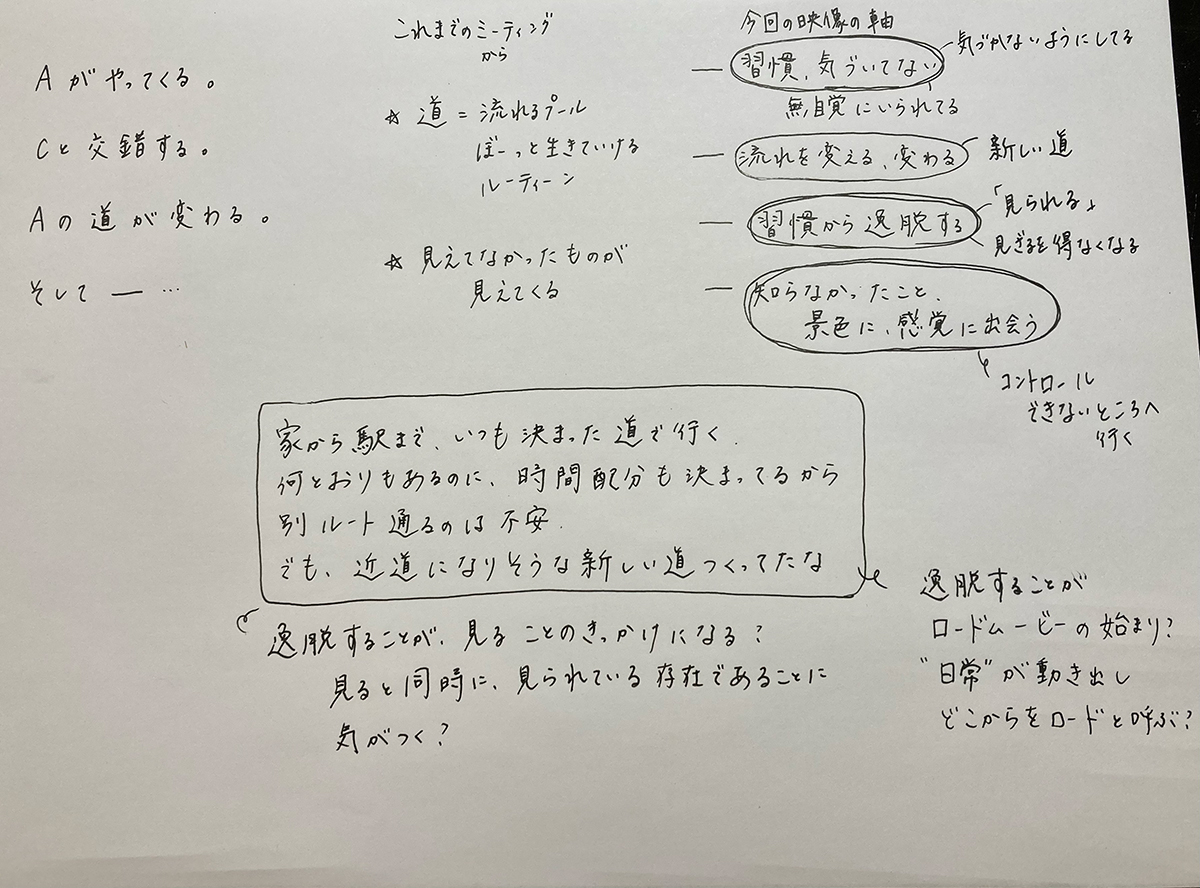 Aがやってくる。
Cと交錯する。
Aの道が変わる。
そして ― …
これまでのミーティング
から
☆ 道 = 流れるプール
ぼーっと生きていける
ルーティーン
☆ 見えてなかったものが
見えてくる
今回の映像の軸
― 習慣、気づいてない
気づかないようにしてる
無自覚にいられてる
― 流れを変える、変わる
新しい道
― 習慣から逸脱する
「見られる」
見ざるを得なくなる
― 知らなかったこと、
景色に、感覚に出会う
コントロール
できないところへ
行く
家から駅まで、いつも決まった道で行く.
何とおりもあるのに、時間配分も決まってるから
別ルート通るのは不安.
でも、近道になりそうな新しい道つくってたな
逸脱することが、見ることのきっかけになる?
見ると同時に、見られている存在であることに
気がつく?
逸脱することが
ロードムービーの始まり?
"日常"が動き出し
どこからをロードと呼ぶ?